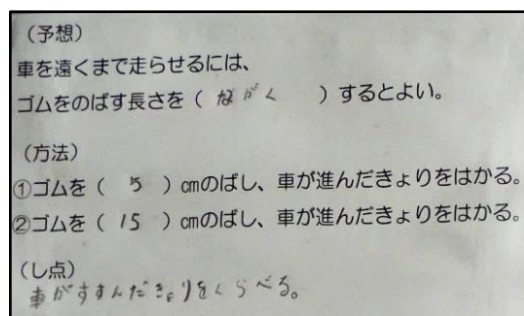 (予想)
車を遠くまで走らせるには、
ゴムをのばす長さを( ながく )するとよい。
(方法)
①ゴムを( 5 )cmのばし、車が進んだきょりをはかる。
②ゴムを( 15 )cmのばし、車が進んだきょりをはかる。
(し点)
車がすすんだきょりをくらべる。